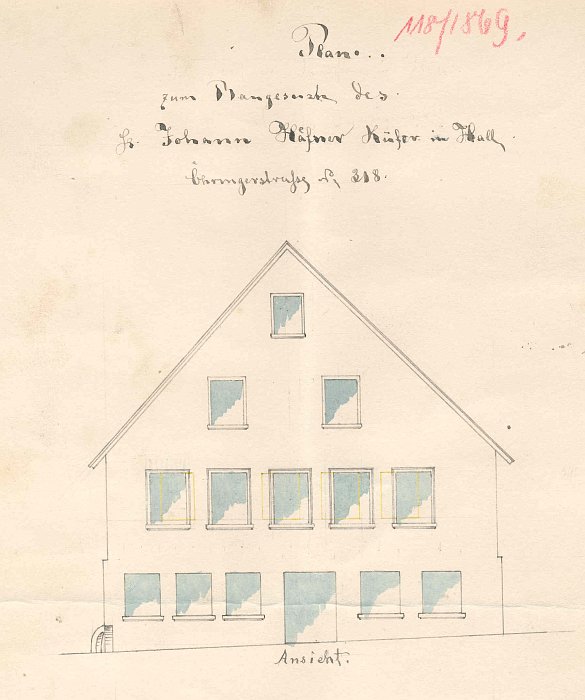 118/1869.
Plan.
zum Baugesuche des
H. Johann Häfner Küfer in Hall
Öhringerstrasse No 318.
Ansicht.